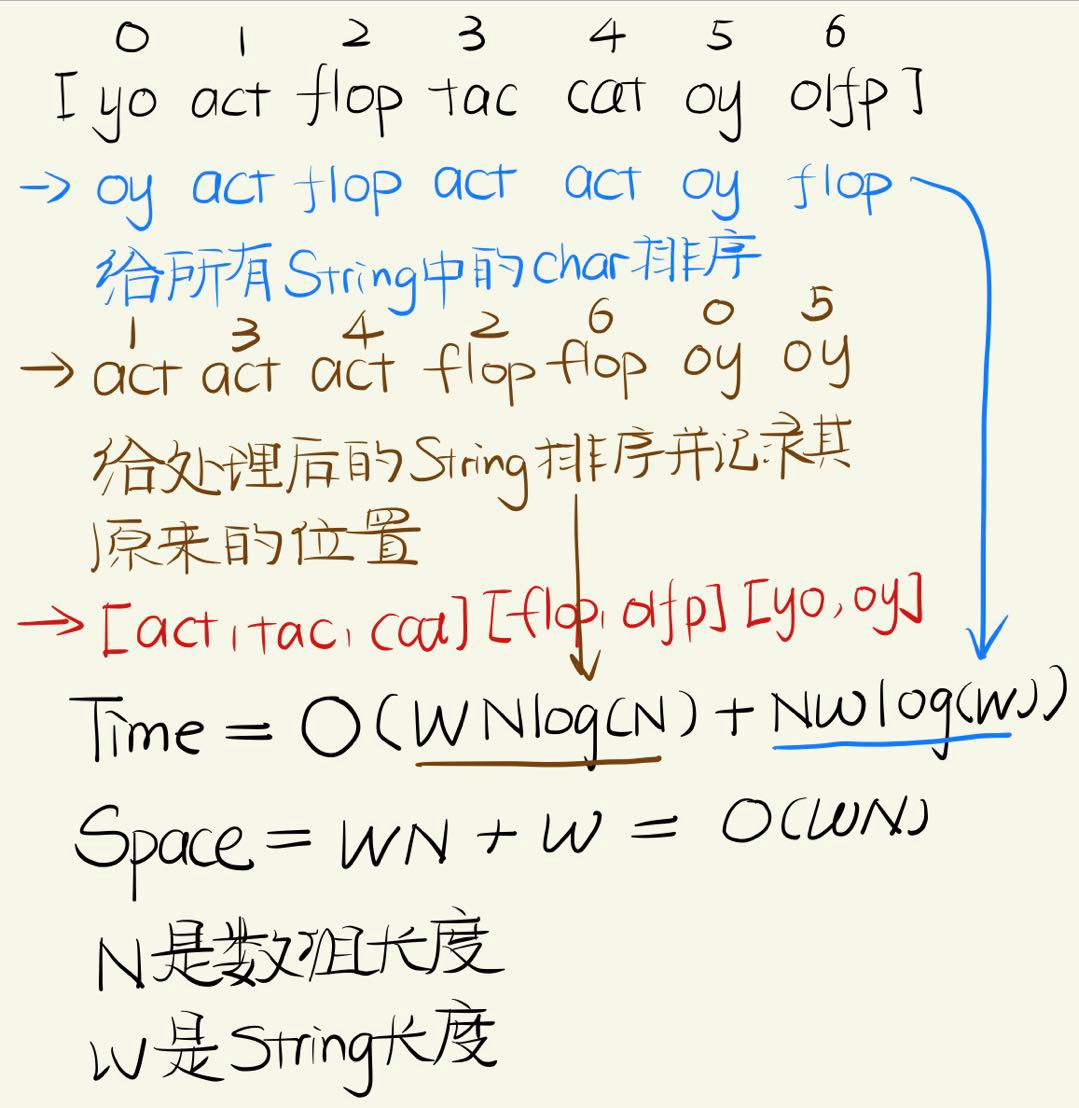 0 1 2 3 4 5 6
[yo act flop tac cat oy olfp]
→ oy act flop act act oy flop
给所有String中的char排序
1 3 4 2 6 0 5
→ act act act flop flop oy oy
给处理后的String排序并记录其
原来的位置
→ [act, tac, cat] [flop, olfp] [yo, oy]
Time = O(WNlog(N) + NWlog(W))
Space = WN + W = O(WN)
N是数组长度
W是String长度